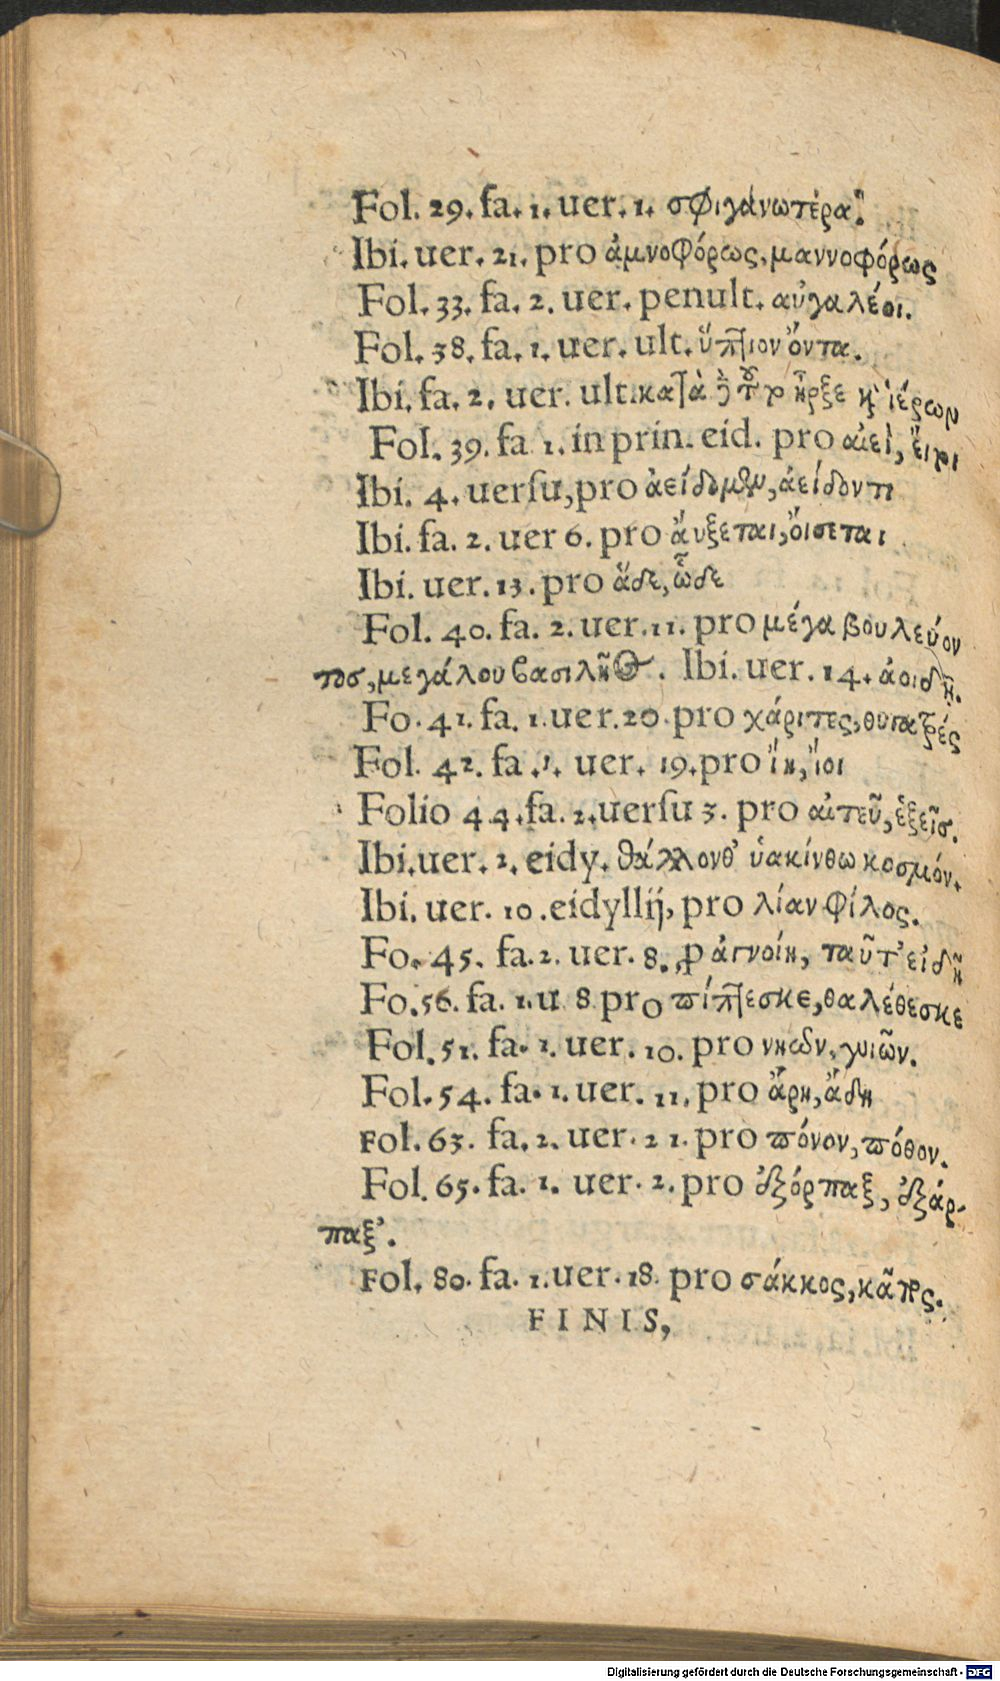 Fol. 29. fa. 1. uer. 1. σφιγανωτέρα.
Ibi. uer. 21. pro ἀμνοφόρως, μαννοφόρως
Fol. 33. fa. 2. uer. penult. αὐγαλέοι.
Fol. 38. fa. 1. uer. ult. ὕπτιον ὄντα.
Ibi. fa. 2. uer. ult. ἦρξε ἱέρων
Fol. 39. fa 1. in prin. eid. pro αἰεὶ, εἴρι
Ibi. 4. uersu, pro ἀείδομεν, ἀείδοντι
Ibi. fa. 2. uer 6. pro ἄυξεται, ὄισεται
Ibi. uer. 13. pro ἅδε, ὧδε
Fol. 40. fa. 2. uer. 11. pro μέγα βουλεύον
τος, μεγάλου βασιλῆος. Ibi. uer. 14. ἀοιδῆ.
Fo. 41. fa. 1. uer. 20. pro χάριτες, θυγατρές
Fol. 42. fa. 1. uer. 19. pro ἴη, ἴοι
Folio 44. fa. 2. uersu 3. pro αἰτεῦ, ἑξεῖς.
Ibi. uer. 2. eidy. θάλλονθ' ὑακίνθω κοσμόν.
Ibi. uer. 10. eidyllij, pro λίαν φίλος.
Fo. 45. fa. 2. uer. 8. ꝓ ἀγνοίη, ταῦτ' εἰδῆ
Fo. 56. fa. 1. u 8 pro πίπτεσκε, θαλέθεσκε
Fol. 51. fa. 1. uer. 10. pro νηῶν, γυιῶν.
Fol. 54. fa. 1. uer. 11. pro ἄρη, ἅδη
Fol. 63. fa. 2. uer. 21. pro πόνον, πόθον.
Fol. 65. fa. 1. uer. 2. pro ἐξόρπαξ, ἐξάρ-
παξ'.
Fol. 80. fa. 1. uer. 18. pro σάκκος,
FINIS,
Digitalisierung gefördert durch die Deutsche Forschungsgemeinschaft - DFG